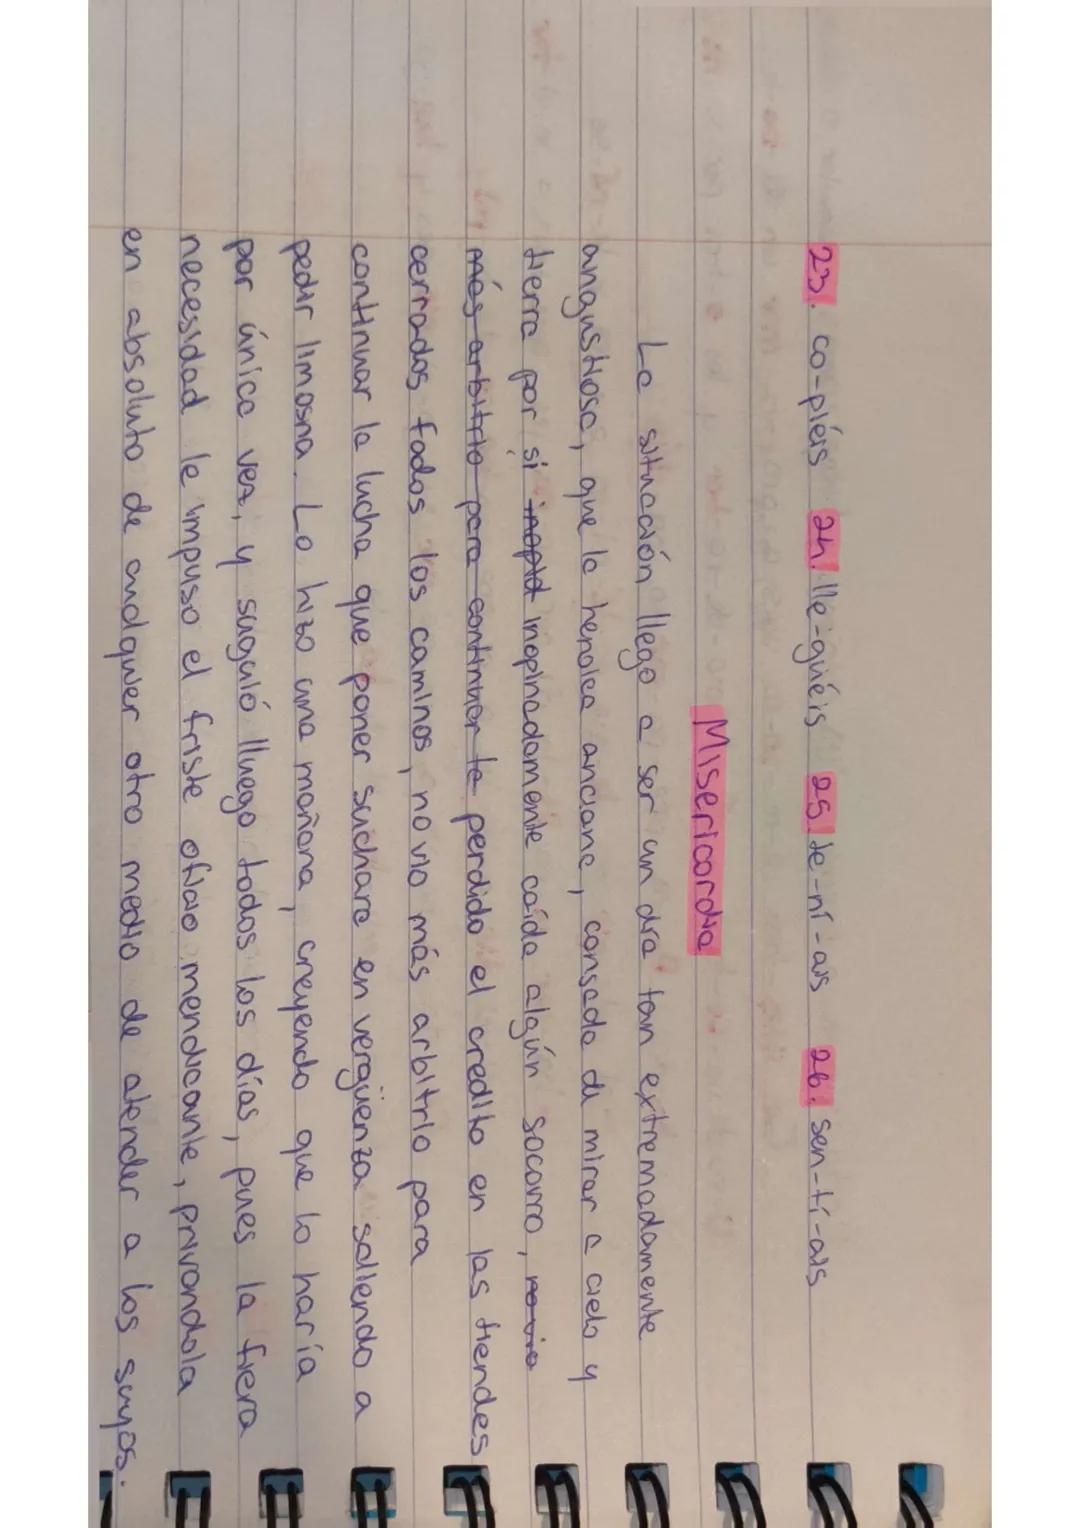 23. co-piéis 24. lle-guéis 25. te-ní-ais 26. sen-tí-ais
Misericordia
La situación llego a ser un dra tan extremadamente
angustiosa, que la heroica anciana, cansada de mirar a cielo y
tierra por si inopid inopinadamente caída algún socorro, no vio
más arbitrio para continuar la perdido el credito en las tiendas
cerrados todos los caminos, no vio más arbitrio para
continuar la lucha que poner su chara en vergüenza saliendo a
pedir limosna. Lo hizo una mañana, creyendo que lo haría
por única vez, y suguió lluego todos los días, pues la fiera
necesidad le impuso el triste oficio mendicante, privandola
en absoluto de cualquier otro medio de atender a los suyos.